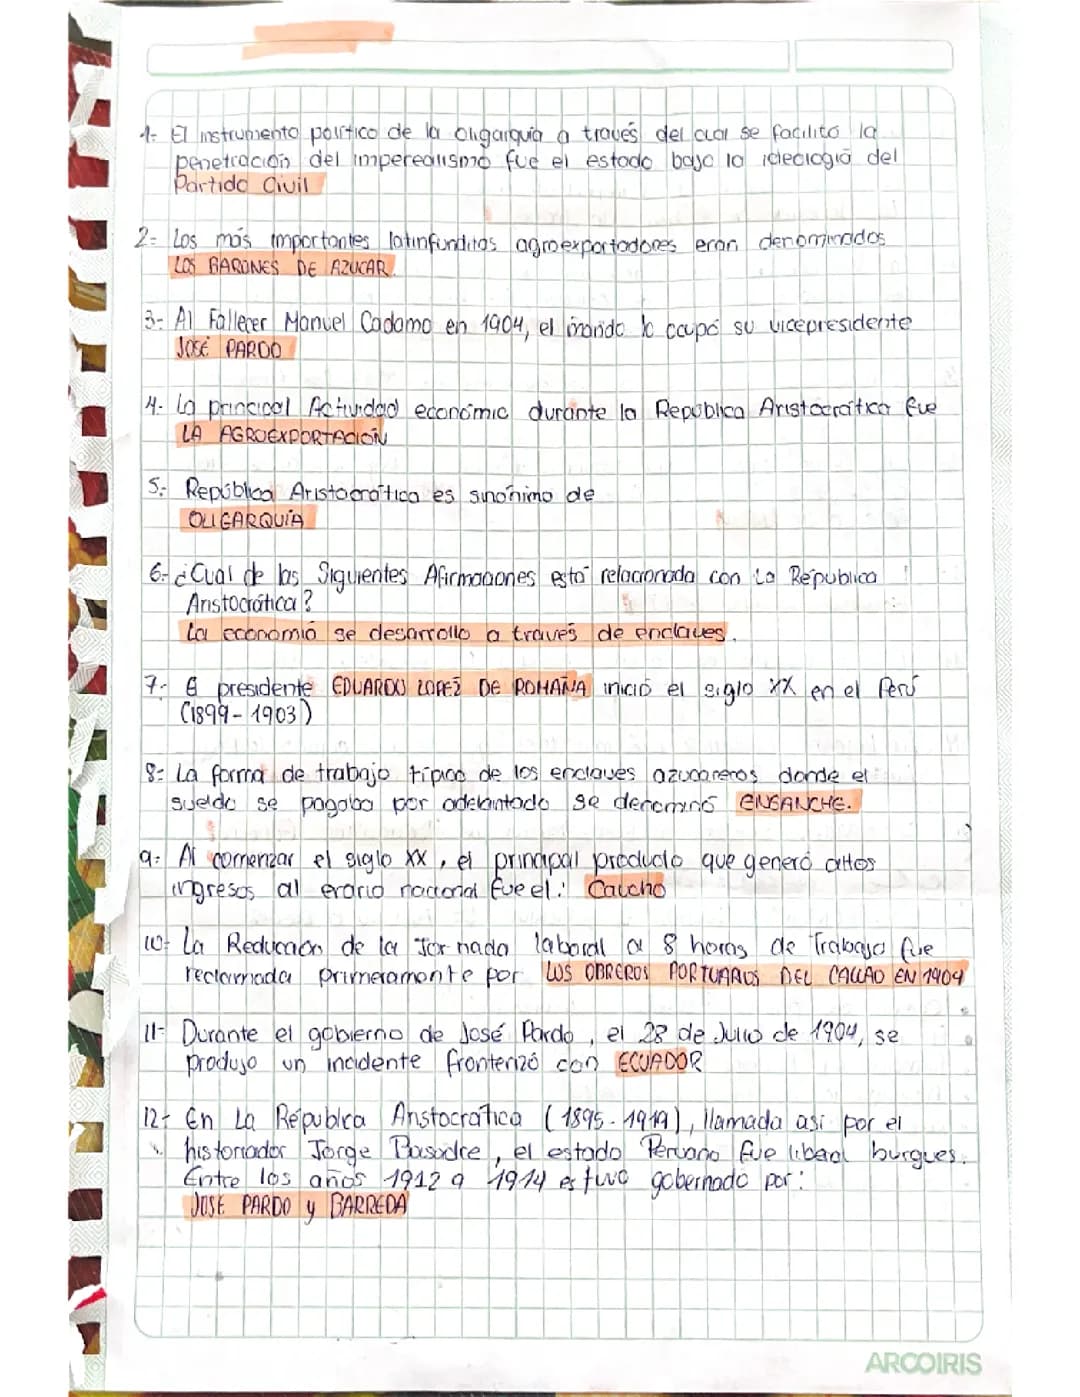 1- El instrumento político de la oligarquía a través del cual se facilitó la
penetración del imperealismo fue el estado bajo la ideología del
Partido Civil
2- Los más importantes latinfunditas agroexportadores eran denominados
LOS BARONES DE AZUCAR.
3- Al Fallecer Manuel Cadamo en 1904, el mando lo ocupó su vicepresidente
JOSÉ PARDO
4- La principal Actividad económic durante la República Aristocrática fue
LA AGROEXPORTACIÓN
5- República Aristocrática es sinónimo de
OLIGARQUÍA
6- ¿Cual de las Siguientes Afirmaciones está relacionada con La Républica
Aristocrática?
La economía se desarrollo a través de enclaves.
7- El presidente EDUARDO LOPEZ DE ROMAÑA inició el siglo XX en el Perú
(1899 - 1903)
8- La forma de trabajo típico de los enclaves azucareros donde el
sueldo se pagaba por adelantado se denominó ENGANCHE.
9- Al comenzar el siglo XX, el principal producto que generó altos
ingresos al erario nacional fue el: Caucho
10- La Reducción de la Jornada laboral a 8 horas de Trabajo fue
reclamada primeramente por LOS OBREROS PORTUARIOS DEL CALLAO EN 1904
11- Durante el gobierno de José Pardo, el 28 de Julio de 1904, se
produjo un incidente fronterizó con ECUADOR
12- En La Républica Aristocrática (1895 - 1919), llamada asi por el
historiador Jorge Basadre, el estado Peruano fue liberal burgues.
Entre los años 1912 a 1914 estuvo gobernado por:
JOSE PARDO y BARREDA
ARCOIRIS